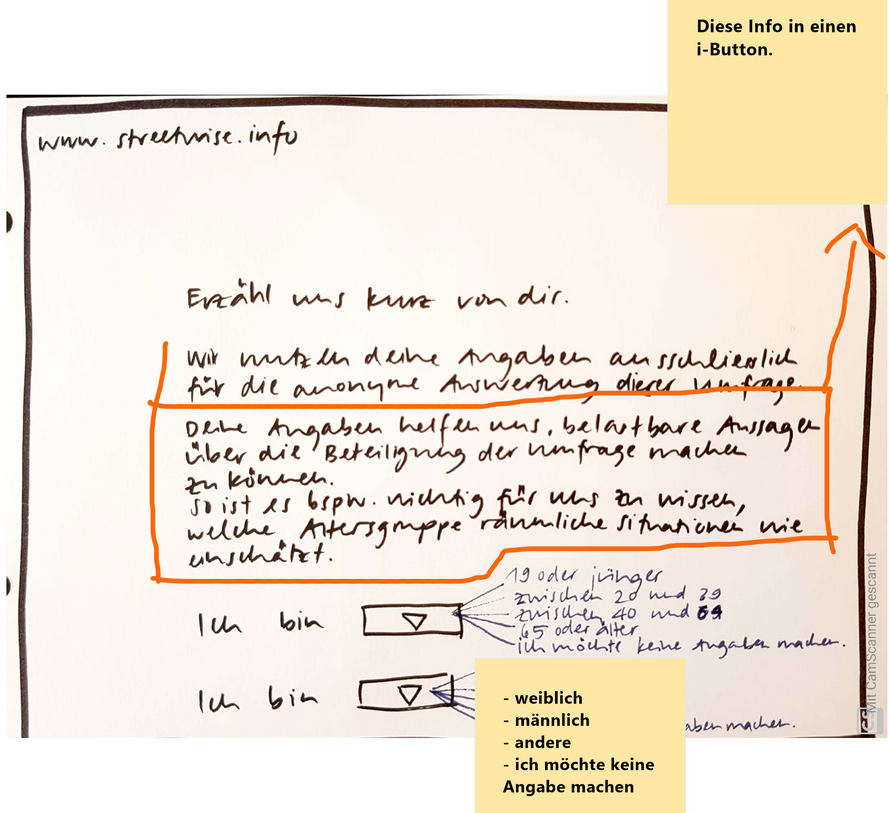 Diese Info in einen
i-Button.
www.streetwise.info
Erzähl uns kurz von dir.
Wir nutzen deine Angaben ausschliesslich
für die anonyme Auswertung dieser Umfrage.
Deine Angaben helfen uns, belastbare Aussagen
über die Beteiligung der Umfrage machen
zu können.
So ist es bspw. wichtig für uns zu wissen,
welche Altersgruppe räumliche Situationen wie
einschätzt.
19 oder jünger
zwischen 20 und 39
zwischen 40 und 64
65 oder älter
ich möchte keine Angaben machen.
Ich bin
Ich bin
- weiblich
- männlich
- andere
- ich möchte keine
Angabe machen
aben machen.
CS Mit CamScanner gescannt